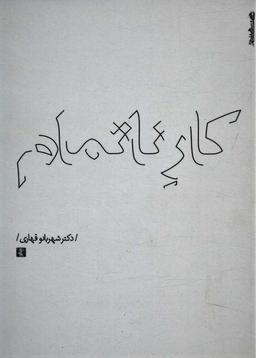 کارِ ناتمام
/دکتر شهربانو قهاری/